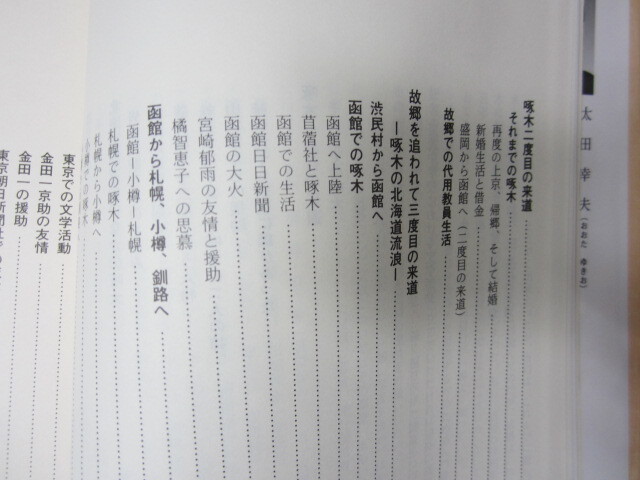 太田幸夫（おおた ゆきお）
啄木二度目の来道
それまでの啄木
再度の上京、帰郷、そして結婚
新婚生活と借金
盛岡から函館へ（二度目の来道）
故郷での代用教員生活
故郷を追われて三度目の来道
―啄木の北海道流浪―
渋民村から函館へ
函館での啄木
函館へ上陸
苜蓿社と啄木
函館での生活
函館日日新聞
函館の大火
宮崎郁雨の友情と援助
橘智恵子への思慕
函館から札幌、小樽、釧路へ
函館―小樽―札幌
札幌での啄木
札幌から小樽へ
小樽での啄木
東京での文学活動
金田一京助の友情
金田一の援助
東京朝日新聞社